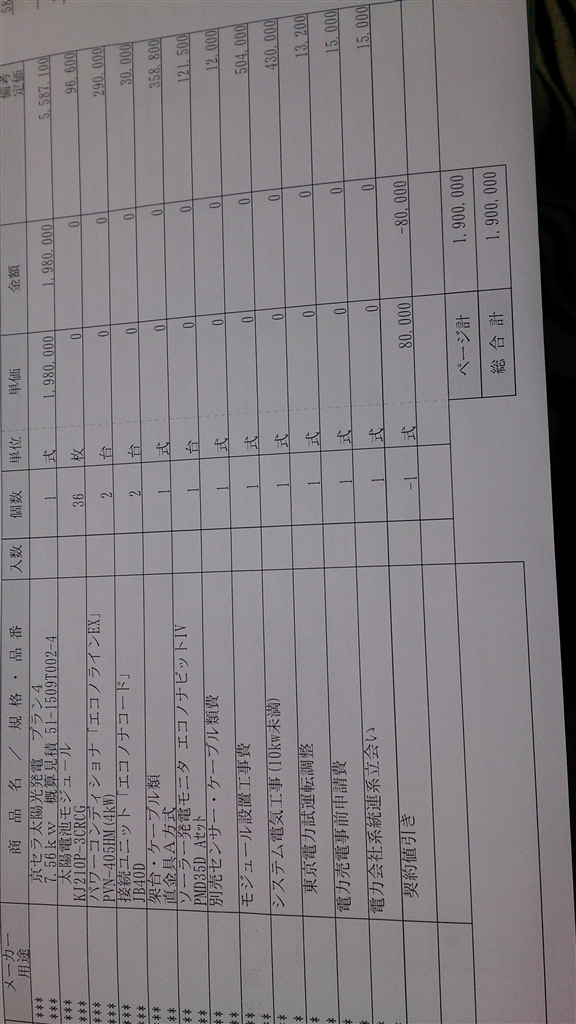 メーカー 用途 商品名 / 規格・品番 入数 個数 単位 単価 金額 備考 定価
*** 京セラ太陽光発電 プラン4
*** 7.56kw 概算見積 51-1509T002-4 1 式 1,980,000 1,980,000 5,587,100
*** 太陽電池モジュール
*** KJ210P-3CRCG 36 枚 0 0 96,600
*** パワーコンディショナ「エコノラインEX」
*** PVN-405HM(4kW) 2 台 0 0 290,000
*** 接続ユニット「エコノナコード」
*** JB40D 2 台 0 0 30,000
** 架台・ケーブル類
** 直金具A方式 1 式 0 0 358,800
** ソーラー発電モニタ エコノナビットIV
** PMD35D Aセット 1 台 0 0 121,500
** 別売センサー・ケーブル類費 1 式 0 0 12,000
** モジュール設置工事費 1 式 0 0 504,000
* システム電気工事(10kw未満) 1 式 0 0 430,000
* 東京電力試運転調整 1 式 0 0 13,200
* 電力売電事前申請費 1 式 0 0 15,000
* 電力会社系統連系立会い 1 式 0 0 15,000
* 契約値引き -1 式 80,000 -80,000
ページ計 1,900,000
総合計 1,900,000